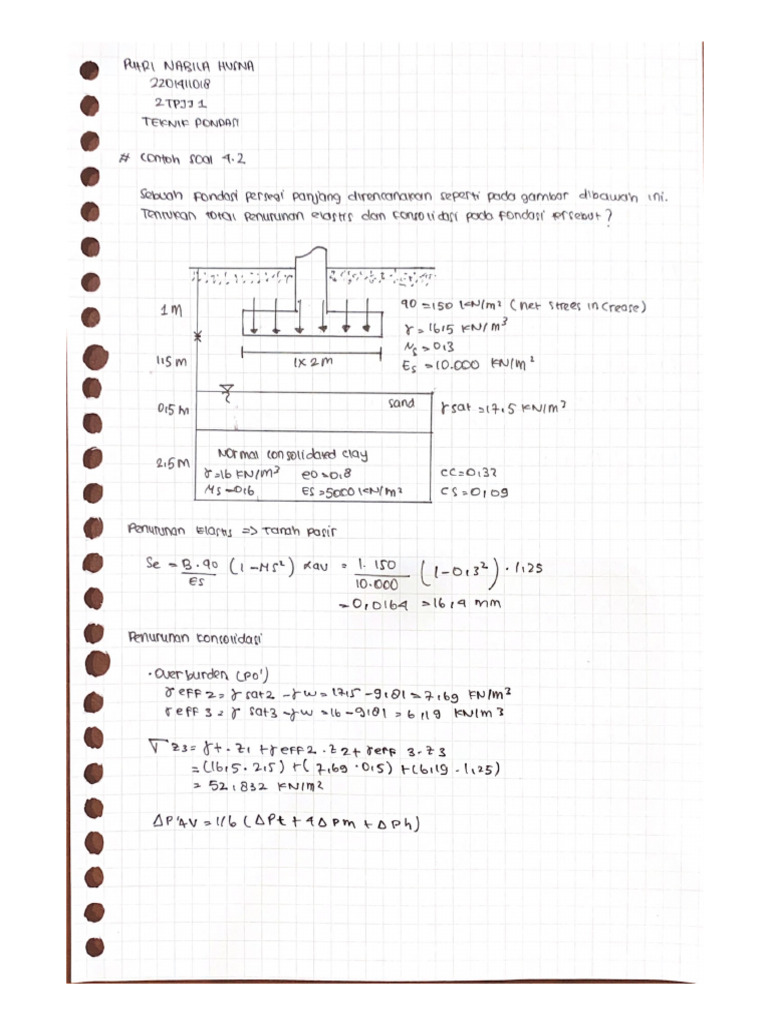 PUTRI NABILA HUSNA
2201411018
2TPJJ 1
TEKNIK PONDASI
# Contoh soal 4.2
Sebuah Fondasi persegi panjang direncanakan seperti pada gambar dibawah ini.
Tentukan total penurunan elastis dan consolidasi pada fondasi tersebut?
1 M
q0 = 150 kN/m² (net strees increase)
γ = 16,5 KN/m³
Ms = 0,3
Es = 10.000 KN/m²
1,5 m
1 x 2 m
0,5 M
sand
γ sat = 17,5 KN/m³
2,5 M
Normal consolidated clay
γ = 16 KN/m³ e0 = 0,8 CC = 0,32
Ms = 0,6 ES = 5000 KN/m² CS = 0,09
Penurunan Elastis => Tanah Pasir
Se = B . q0 / Es (1 - Ms²) αav = 1. 150 / 10.000 (1 - 0,3²) . 1,25
= 0,0164 = 16,4 mm
Penurunan konsolidasi
• Overburden (PO')
γ eff 2 = γ sat2 - γw = 17,5 - 9,81 = 7,69 KN/m³
γ eff 3 = γ sat3 - γw = 16 - 9,81 = 6,19 KN/m3
σ z3 = γt . z1 + γeff2 . z2 + γeff 3 . z3
= (16,5 . 2,5) + (7,69 . 0,5) + (6,19 . 1,25)
= 52,832 KN/m²
ΔP'AV = 1/6 (ΔPt + 4ΔPm + ΔPh)